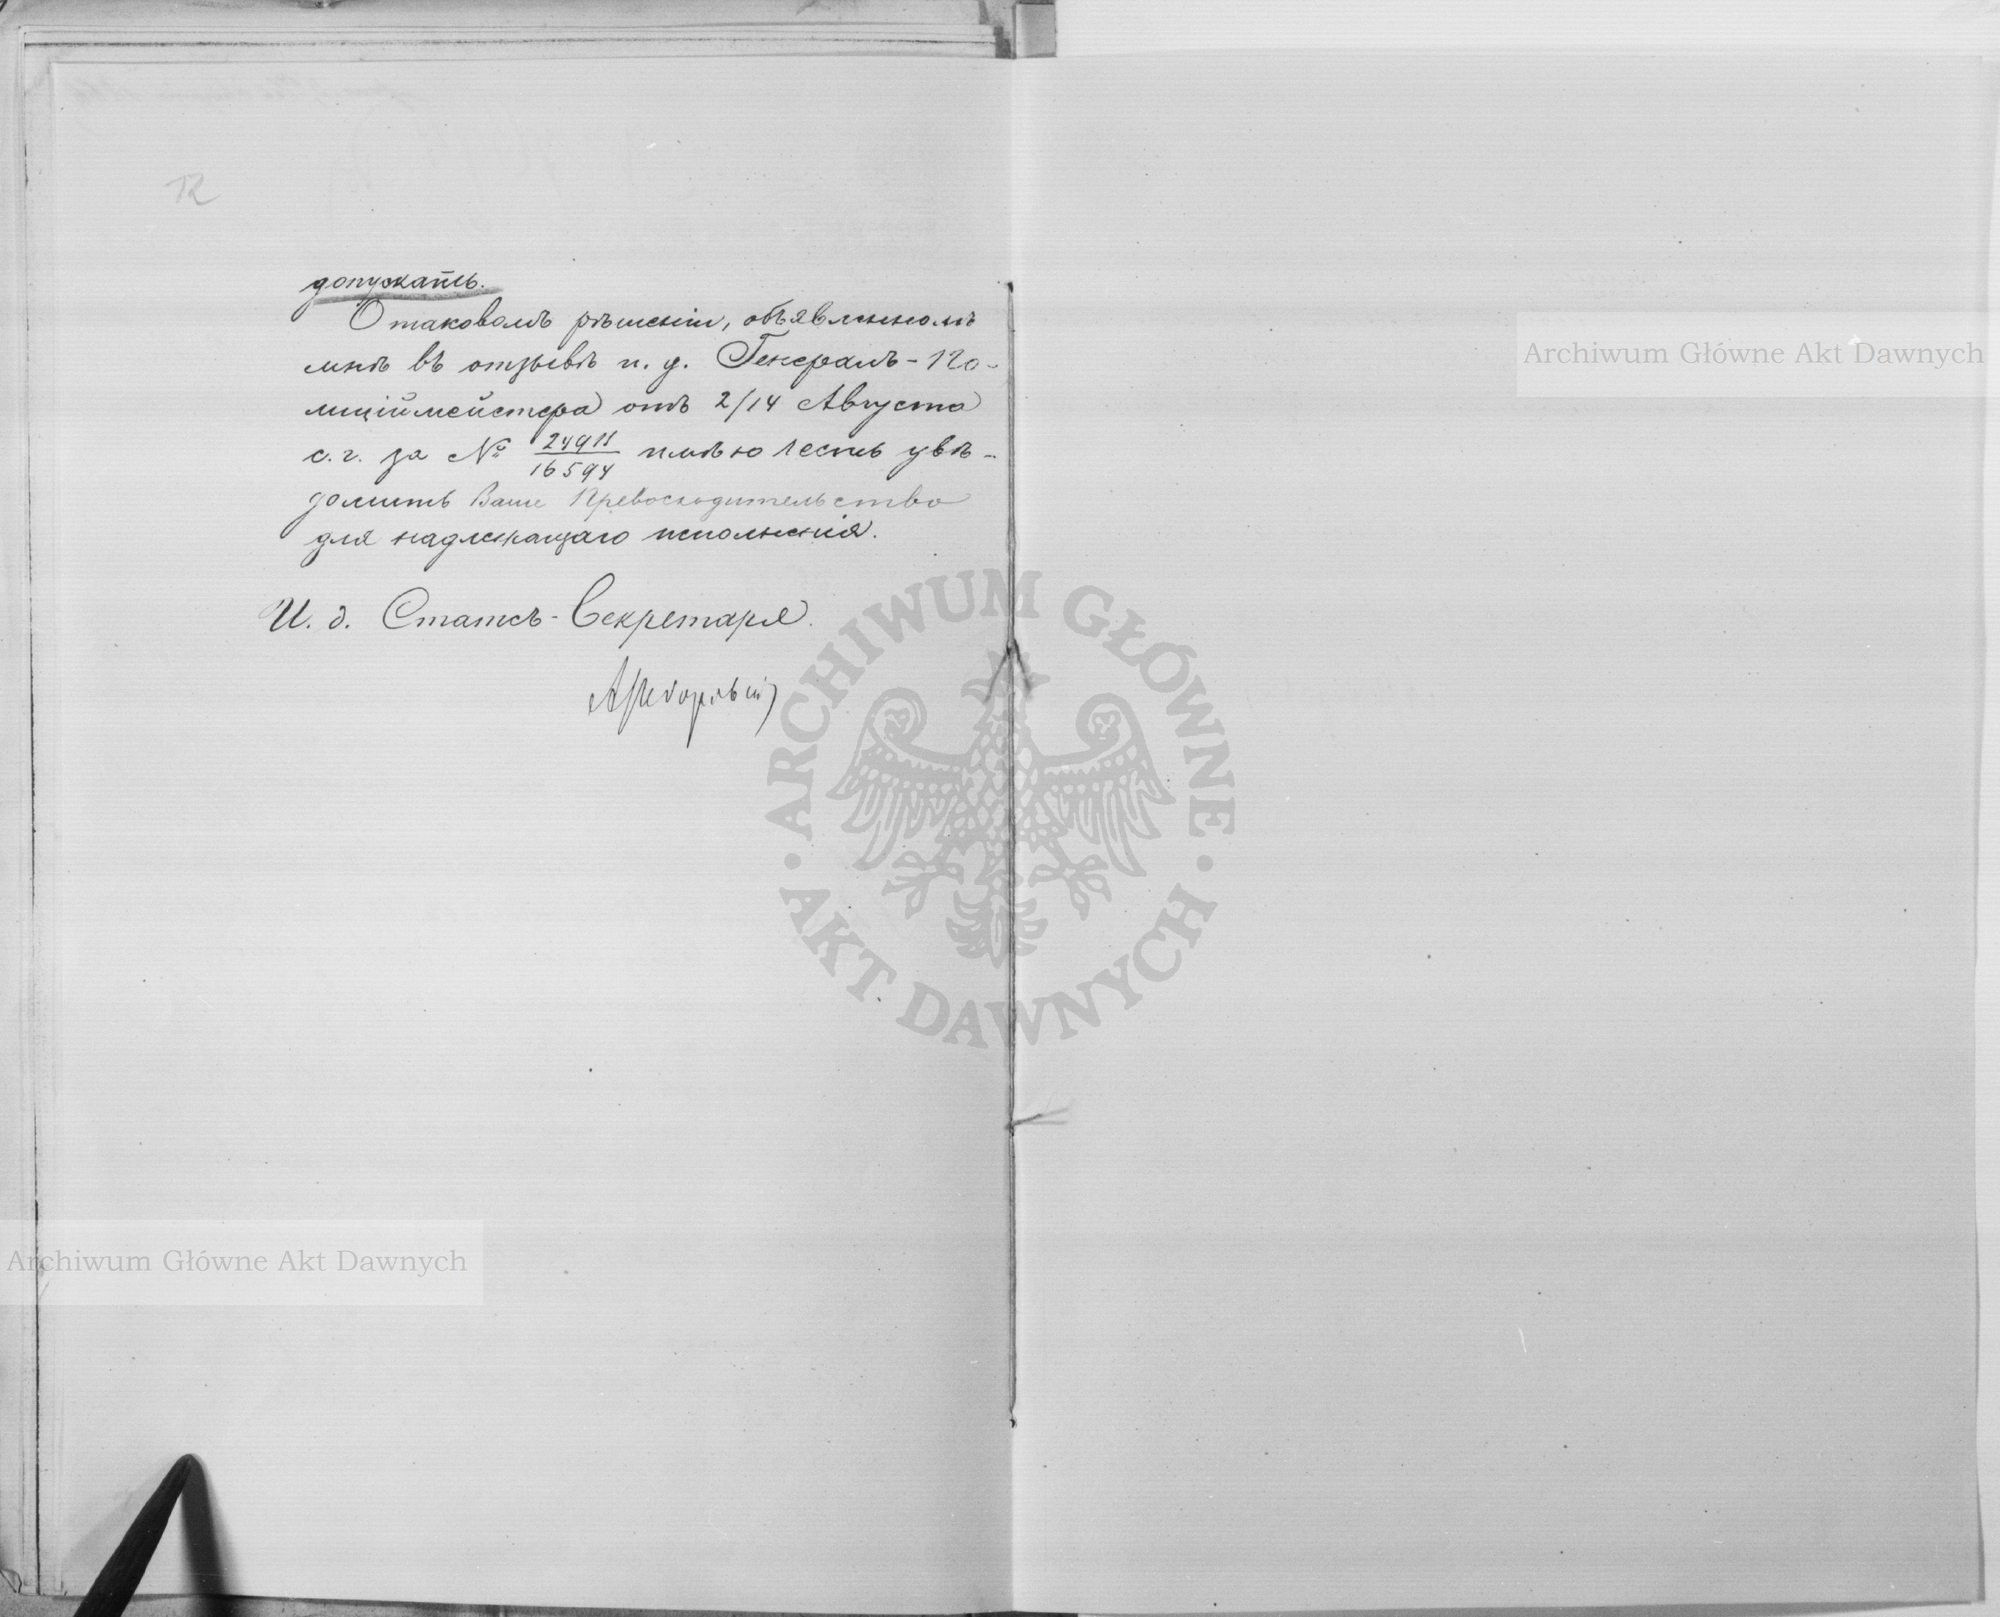 12
допускать.
О таковомъ рѣшеніи, объявленномъ
мнѣ въ отзывѣ и. д. Генералъ-По-
лиціймейстера отъ 2/14 Августа
с. г. за № 24911/16594 имѣю честь увѣ-
домить Ваше Превосходительство
для надлежащаго исполненія.
И. д. Статсъ-Секретаря
Archiwum Główne Akt Dawnych
ARCHIWUM GŁÓWNE · AKT DAWNYCH ·
Archiwum Główne Akt Dawnych